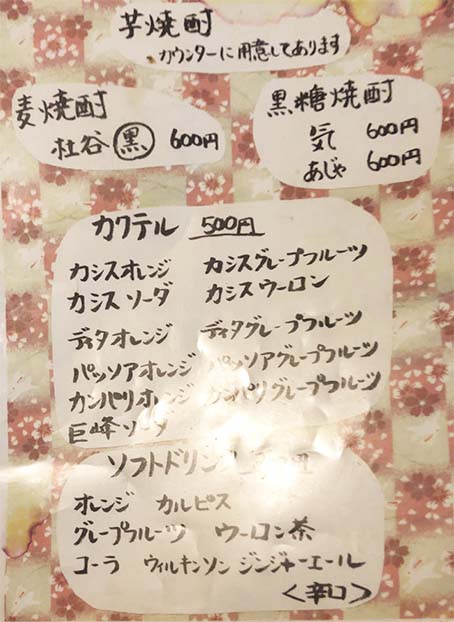 芋焼酎
カウンターに用意してあります
麦焼酎
杜谷 黒 600円
黒糖焼酎
気 600円
あじゃ 600円
カクテル 500円
カシスオレンジ カシスグレープフルーツ
カシスソーダ カシスウーロン
ディタオレンジ ディタグレープフルーツ
パッソアオレンジ パッソアグレープフルーツ
カンパリオレンジ カンパリグレープフルーツ
巨峰ソーダ
ソフトドリンク
オレンジ カルピス
グレープフルーツ ウーロン茶
コーラ ウィルキンソン ジンジャーエール
<辛口>